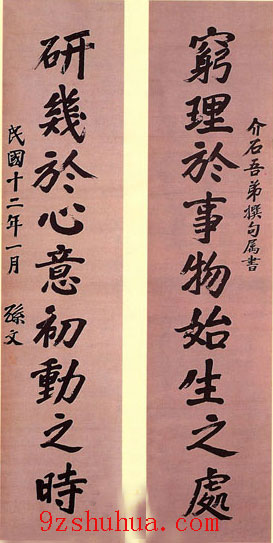 介石吾弟撰句属書
窮理於事物始生之處
研幾於心意初動之時
民國十二年一月 孫文
9zshuhua.com